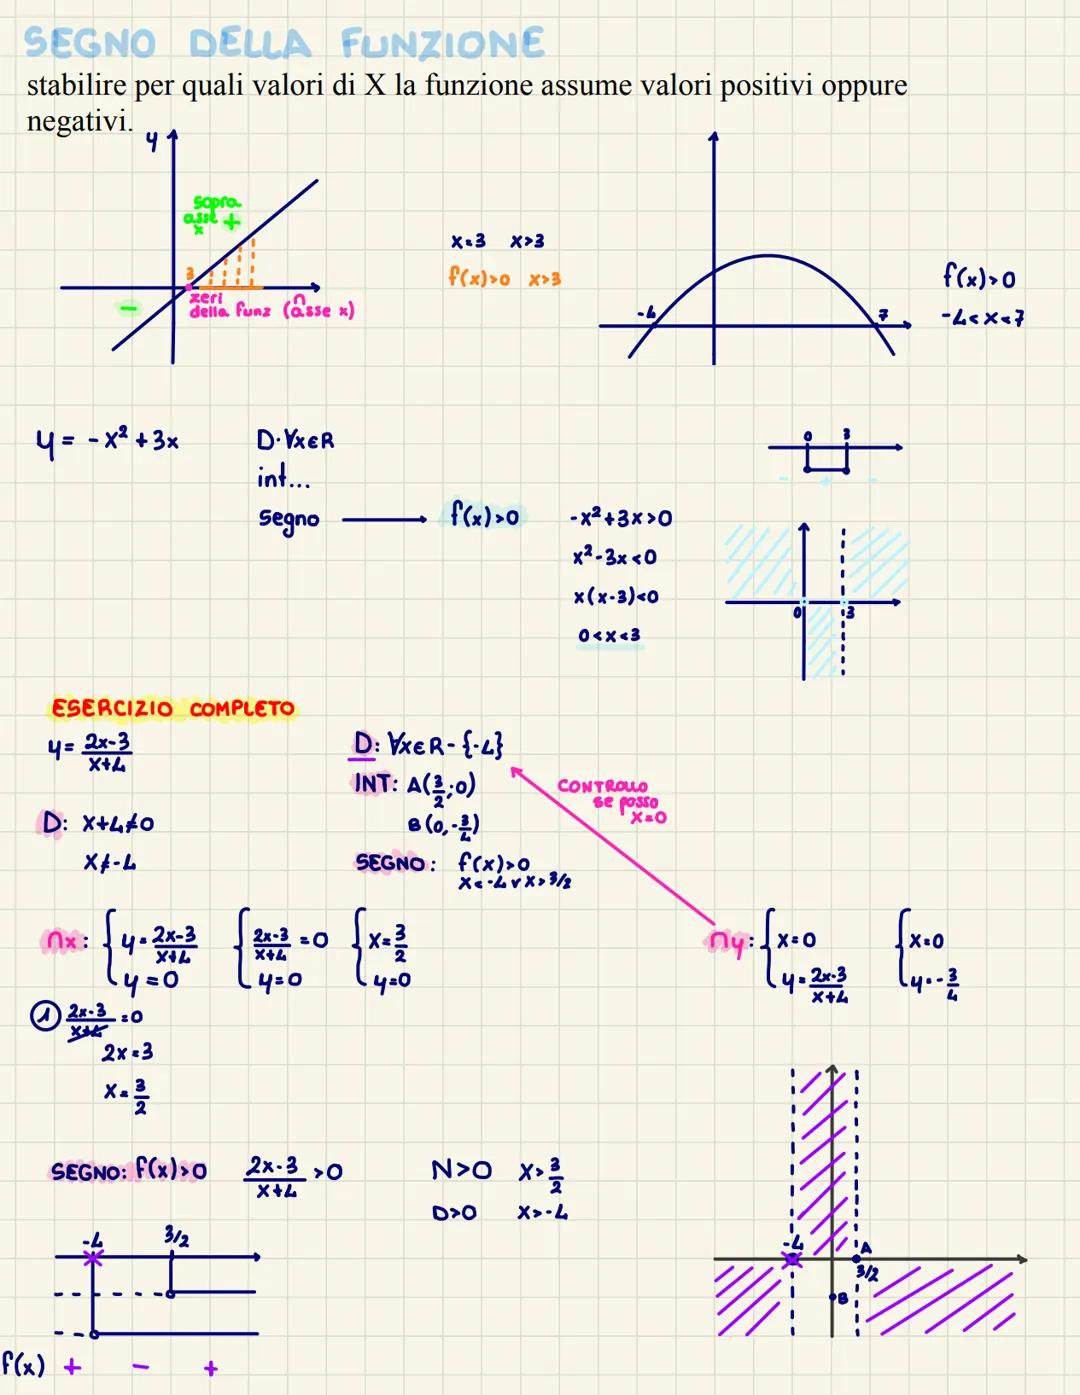 SEGNO DELLA FUNZIONE
stabilire per quali valori di X la funzione assume valori positivi oppure
negativi.
y
sopra
asse +
x
3
-
zeri
della funz (∩ asse x)
x=3 x>3
f(x)>0 x>3
-4 7
f(x)>0
-4<x<7
y = -x² + 3x
D: ∀x∈R
int...
segno → f(x)>0
-x²+3x>0
x²-3x<0
x(x-3)<0
0<x<3
0 3
- + -
0 3
ESERCIZIO COMPLETO
y= 2x-3/x+4
D: x+4≠0
x≠-4
D: ∀x∈R-{-4}
INT: A(3/2;0)
B(0,-3/4)
SEGNO: f(x)>0
x<-4 v x>3/2
CONTROLLO
se posso
x=0
∩x: { y=2x-3/x+4 { 2x-3/x+4 =0 { x=3/2
y=0 y=0 y=0
∩y: { x=0 { x=0
y=2x-3/x+4 y=-3/4
① 2x-3/x+4 =0
2x=3
x=3/2
SEGNO: f(x)>0 2x-3/x+4 >0
N>0 x>3/2
D>0 x>-4
-4 3/2
f(x) + - +
-4 A
3/2
B